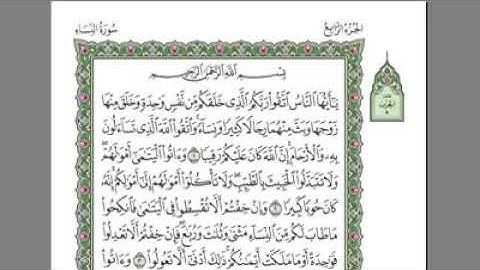 الجزء الرابع
سورة النساء
بسم الله الرحمن الرحيم
يَٰٓأَيُّهَا ٱلنَّاسُ ٱتَّقُوا۟ رَبَّكُمُ ٱلَّذِى خَلَقَكُم مِّن نَّفْسٍ وَٰحِدَةٍ وَخَلَقَ مِنْهَا
زَوْجَهَا وَبَثَّ مِنْهُمَا رِجَالًا كَثِيرًا وَنِسَآءً وَٱتَّقُوا۟ ٱللَّهَ ٱلَّذِى تَسَآءَلُونَ
بِهِۦ وَٱلْأَرْحَامَ إِنَّ ٱللَّهَ كَانَ عَلَيْكُمْ رَقِيبًا ١ وَءَاتُوا۟ ٱلْيَتَٰمَىٰٓ أَمْوَٰلَهُمْ
وَلَا تَتَبَدَّلُوا۟ ٱلْخَبِيثَ بِٱلطَّيِّبِ وَلَا تَأْكُلُوٓا۟ أَمْوَٰلَهُمْ إِلَىٰٓ أَمْوَٰلِكُمْ إِنَّهُۥ
كَانَ حُوبًا كَبِيرًا ٢ وَإِنْ خِفْتُمْ أَلَّا تُقْسِطُوا۟ فِى ٱلْيَتَٰمَىٰ فَٱنكِحُوا۟
مَا طَابَ لَكُم مِّنَ ٱلنِّسَآءِ مَثْنَىٰ وَثُلَٰثَ وَرُبَٰعَ فَإِنْ خِفْتُمْ أَلَّا تَعْدِلُوا۟
فَوَٰحِدَةً أَوْ مَا مَلَكَتْ أَيْمَٰنُكُمْ ذَٰلِكَ أَدْنَىٰٓ أَلَّا تَعُولُوا۟ ٣ وَءَاتُوا۟